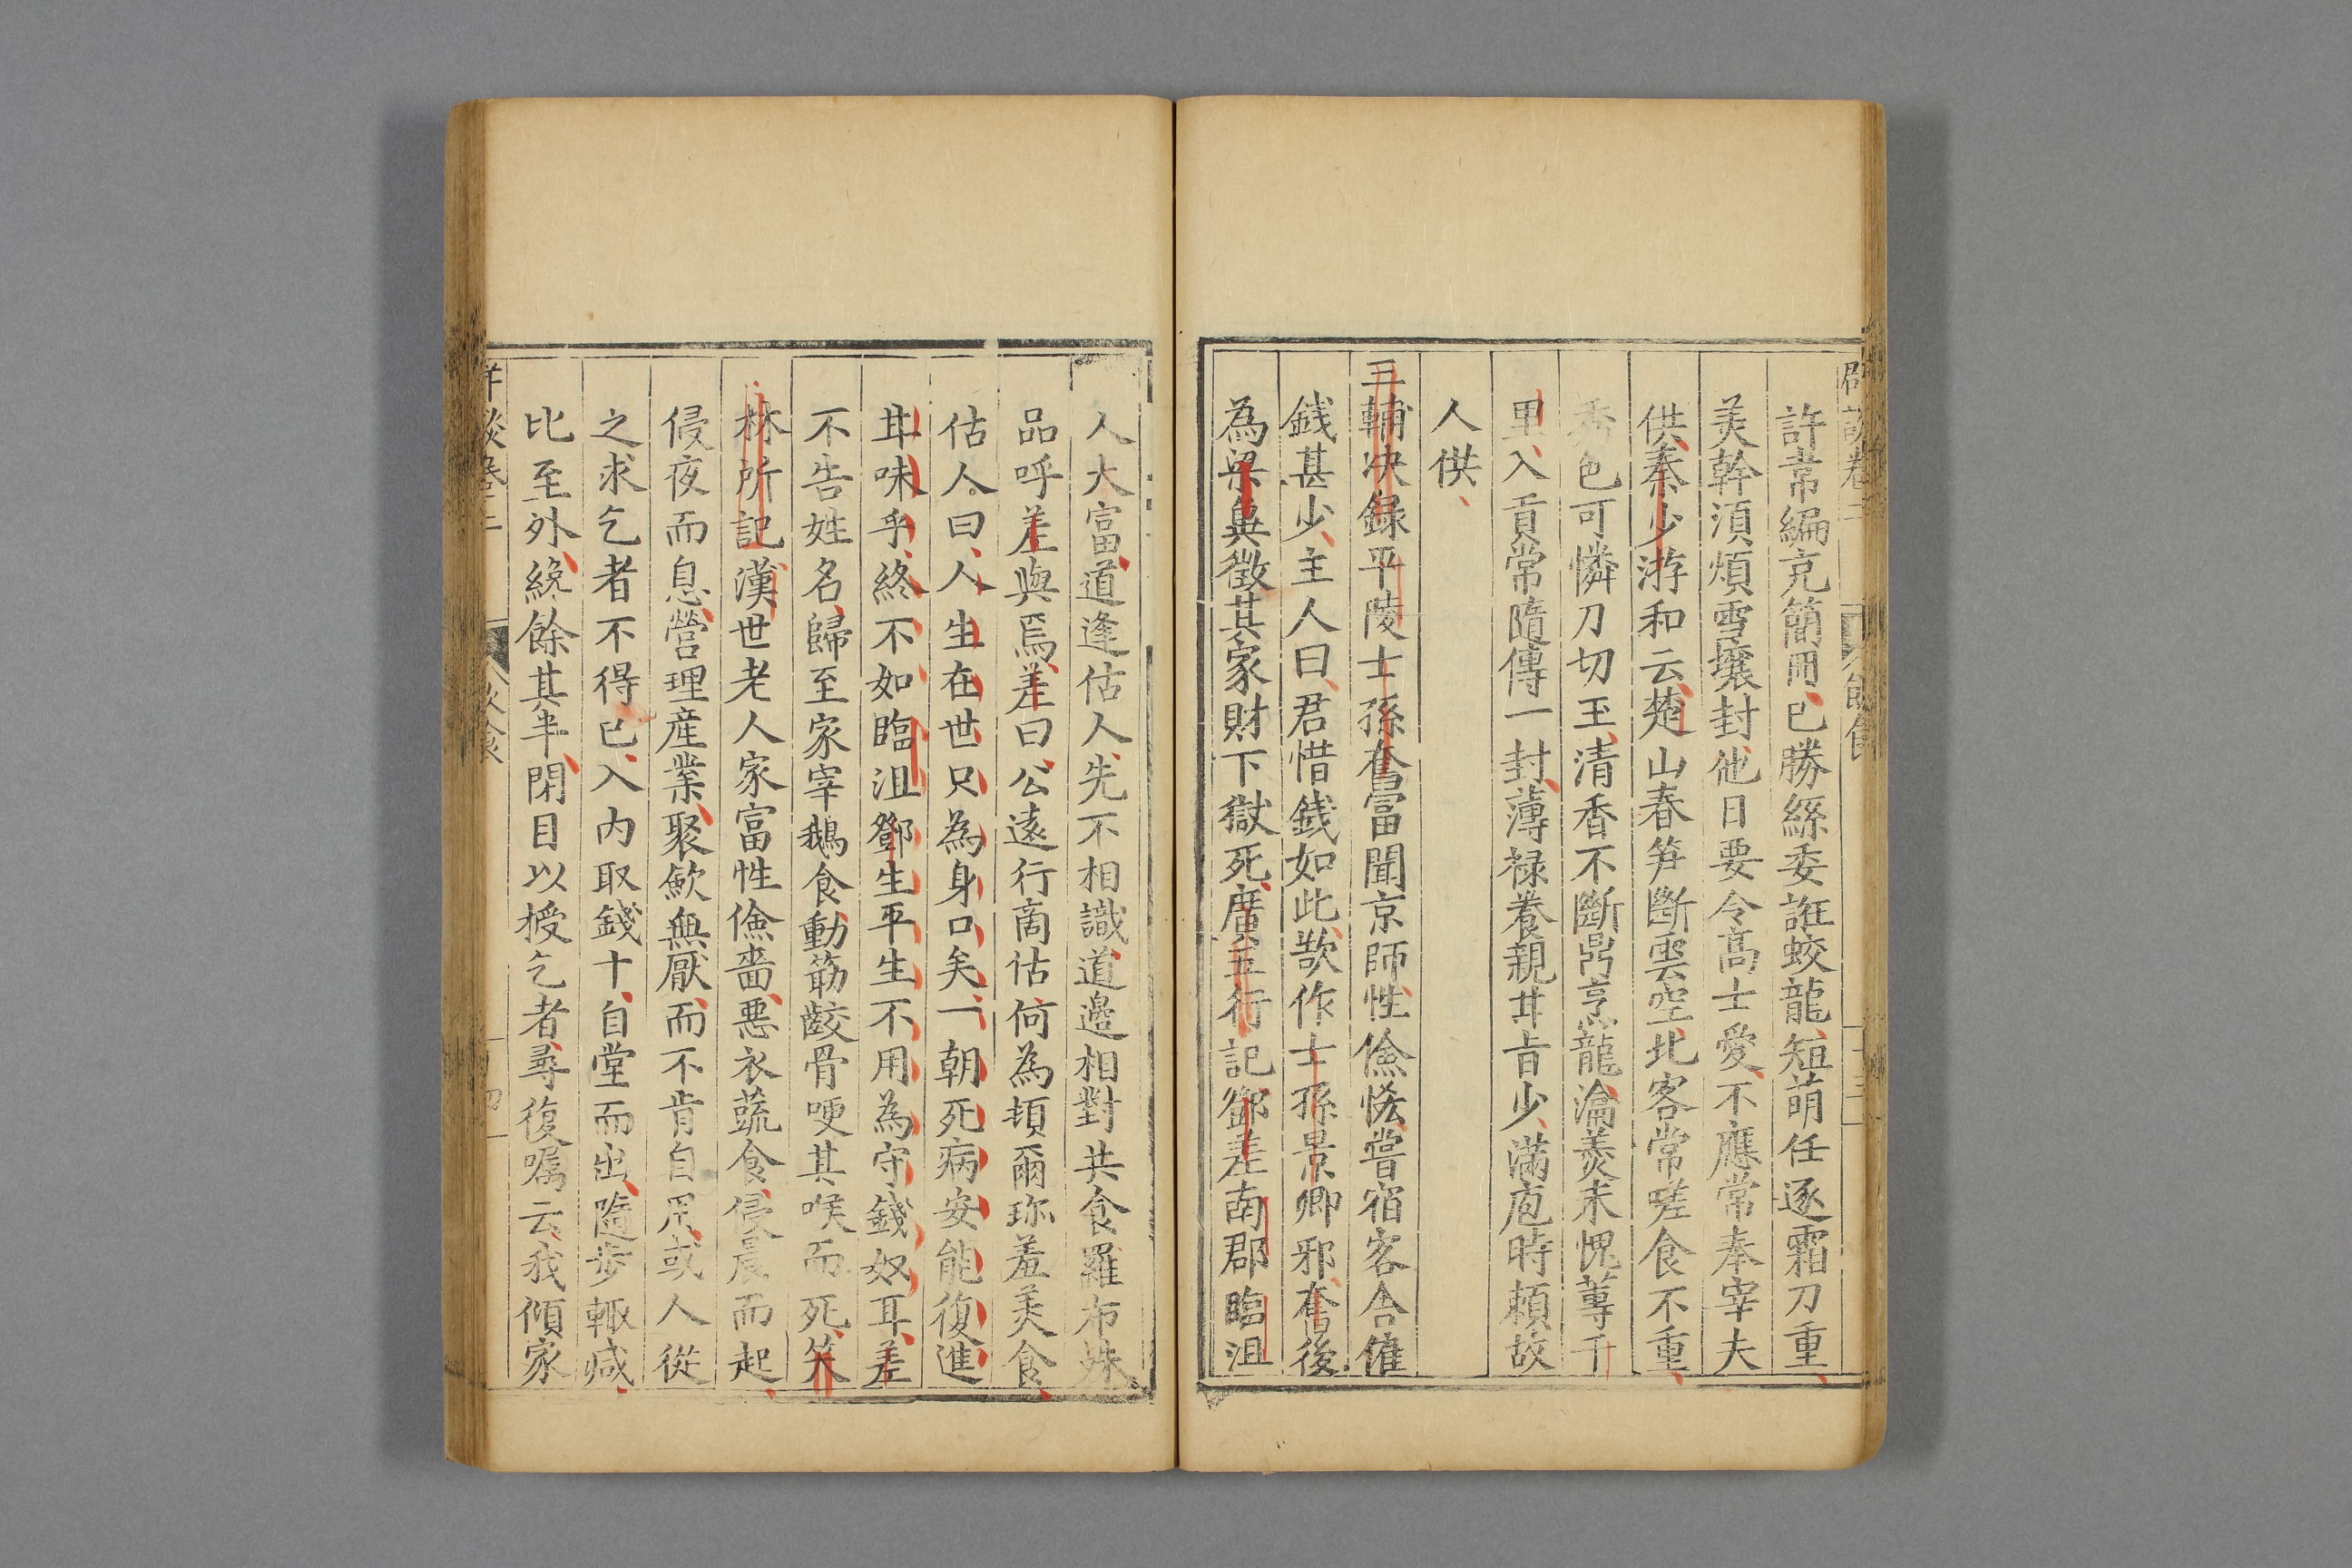 許常編克簡用已勝絲委誑蛟龍短萌任逐霜刀重
美幹湏煩雪壤封他日要令高士愛不應常奉宰夫
供秦少游和云楚山春笋斷雲空北客常嗟食不重
秀色可憐刀切玉清香不斷鼎烹龍瀹羮未愧蓴千
里入貢常隨傳一封薄禄養親甘旨少滿庖時頼故
人供
三輔决録平陵士孫奮富聞京師性儉恡嘗宿客舍僱
錢甚少主人曰君惜錢如此欲作士孫景卿邪奮後
為梁兾徵其家財下獄死廣五行記鄧差南郡臨沮
人大富道逢估人先不相識道邊相對共食羅布殊
品呼差與焉差曰公遠行啇估何為頓爾珎羞美食
估人曰人生在世只為身口矣一朝死病安能復進
甘味乎終不如臨沮鄧生平生不用為守錢奴耳差
不告姓名歸至家宰鵝食動筯齩骨哽其喉而死笑
林所記漢世老人家富性儉嗇惡衣蔬食侵晨而起
侵夜而息營理産業聚歛無厭而不肯自用或人從
之求乞者不得已入内取錢十自堂而出隨步輙减
比至外纔餘其半閉目以授乞者尋復囑云我傾家